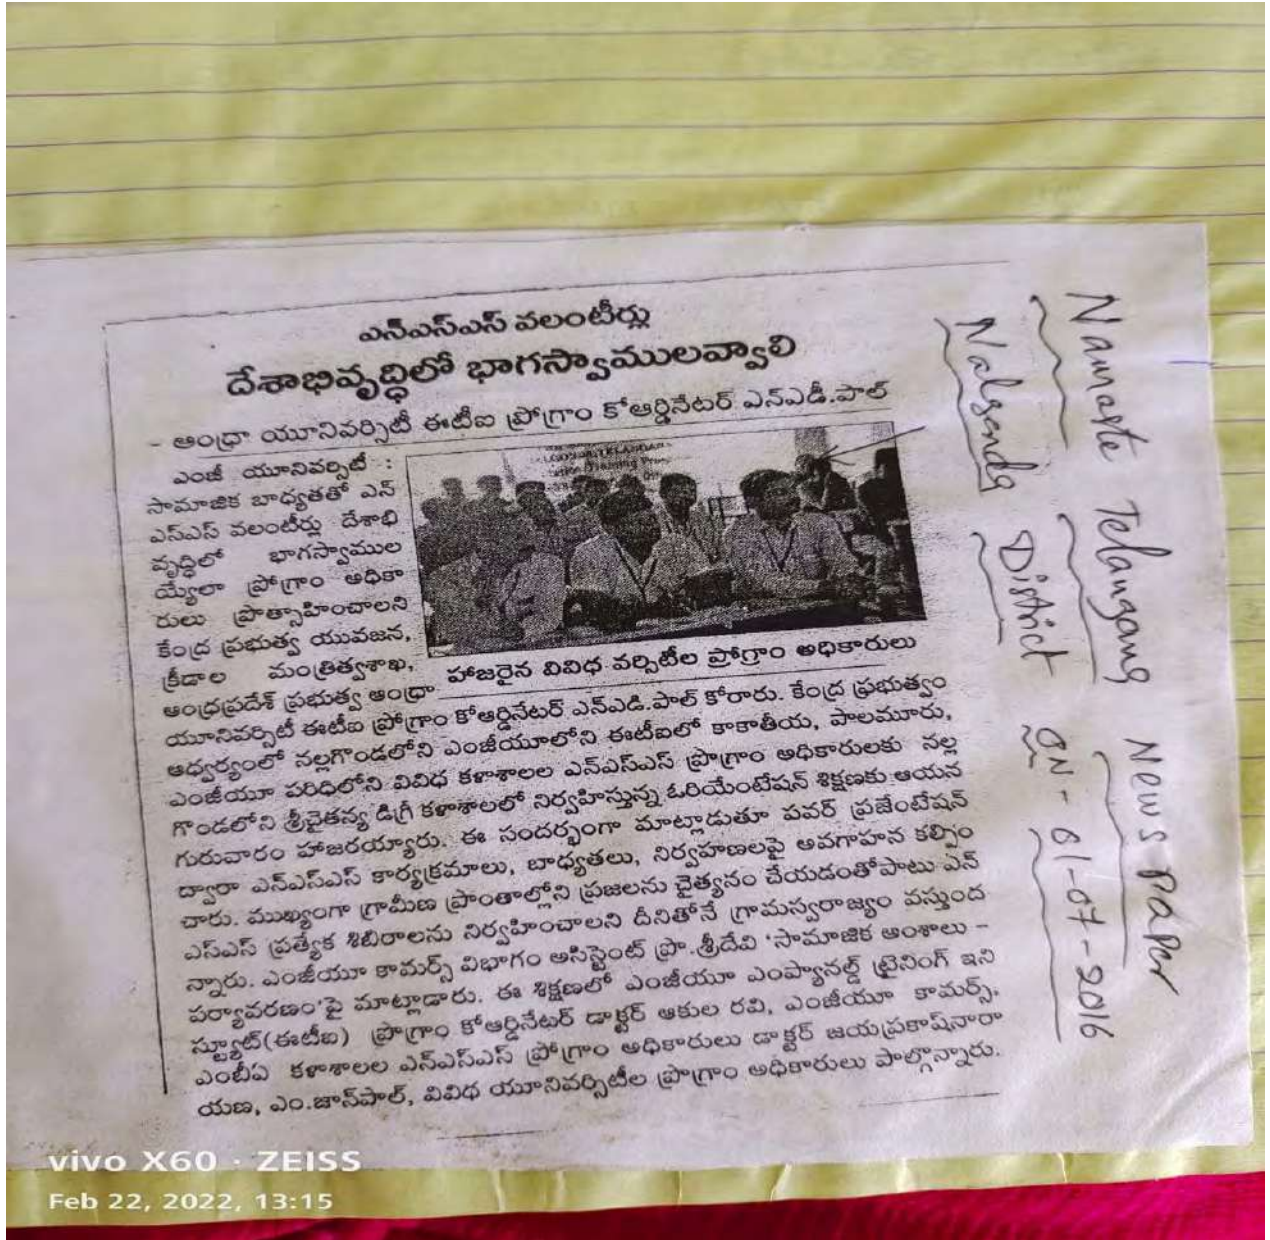 ఎన్ఎస్ఎస్ వలంటీర్లు
దేశాభివృద్ధిలో భాగస్వాములవ్వాలి
- ఆంధ్రా యూనివర్సిటీ ఈటీఐ ప్రోగ్రాం కోఆర్డినేటర్ ఎన్ఎడీ.పాల్
ఎంజీ యూనివర్సిటీ :
సామాజిక బాధ్యతతో ఎన్
ఎస్ఎస్ వలంటీర్లు దేశాభి
వృద్ధిలో భాగస్వాముల
య్యేలా ప్రోగ్రాం అధికా
రులు ప్రోత్సాహించాలని
కేంద్ర ప్రభుత్వ యువజన,
క్రీడాల మంత్రిత్వశాఖ,
హాజరైన వివిధ వర్సిటీల ప్రోగ్రాం అధికారులు
ఆంధ్రప్రదేశ్ ప్రభుత్వ ఆంధ్రా
యూనివర్సిటీ ఈటీఐ ప్రోగ్రాం కోఆర్డినేటర్ ఎన్ఎడి.పాల్ కోరారు. కేంద్ర ప్రభుత్వం
ఆధ్వర్యంలో నల్లగొండలోని ఎంజీయూలోని ఈటీఐలో కాకాతీయ, పాలమూరు,
ఎంజీయూ పరిధిలోని వివిధ కళాశాలల ఎన్ఎస్ఎస్ ప్రోగ్రాం అధికారులకు నల్ల
గొండలోని శ్రీచైతన్య డిగ్రీ కళాశాలలో నిర్వహిస్తున్న ఓరియేంటేషన్ శిక్షణకు ఆయన
గురువారం హాజరయ్యారు. ఈ సందర్భంగా మాట్లాడుతూ పవర్ ప్రజేంటేషన్
ద్వారా ఎన్ఎస్ఎస్ కార్యక్రమాలు, బాధ్యతలు, నిర్వహణలపై అవగాహన కల్పిం
చారు. ముఖ్యంగా గ్రామీణ ప్రాంతాల్లోని ప్రజలను చైత్యనం చేయడంతోపాటు ఎన్
ఎస్ఎస్ ప్రత్యేక శిబిరాలను నిర్వహించాలని దీనితోనే గ్రామస్వరాజ్యం వస్తుంద
న్నారు. ఎంజీయూ కామర్స్ విభాగం అసిస్టెంట్ ప్రొ.శ్రీదేవి 'సామాజిక అంశాలు -
పర్యావరణం'పై మాట్లాడారు. ఈ శిక్షణలో ఎంజీయూ ఎంప్యానల్డ్ ట్రైనింగ్ ఇని
స్ట్యూట్(ఈటీఐ) ప్రోగ్రాం కోఆర్డినేటర్ డాక్టర్ ఆకుల రవి, ఎంజీయూ కామర్స్,
ఎంబీఏ కళాశాలల ఎన్ఎస్ఎస్ ప్రోగ్రాం అధికారులు డాక్టర్ జయప్రకాష్‌నారా
యణ, ఎం.జాన్‌పాల్, వివిధ యూనివర్సిటీల ప్రోగ్రాం అధికారులు పాల్గొన్నారు.
Namaste Telangana News Paper
Nalgonda District on - 01-07-2016
vivo X60 · ZEISS
Feb 22, 2022, 13:15